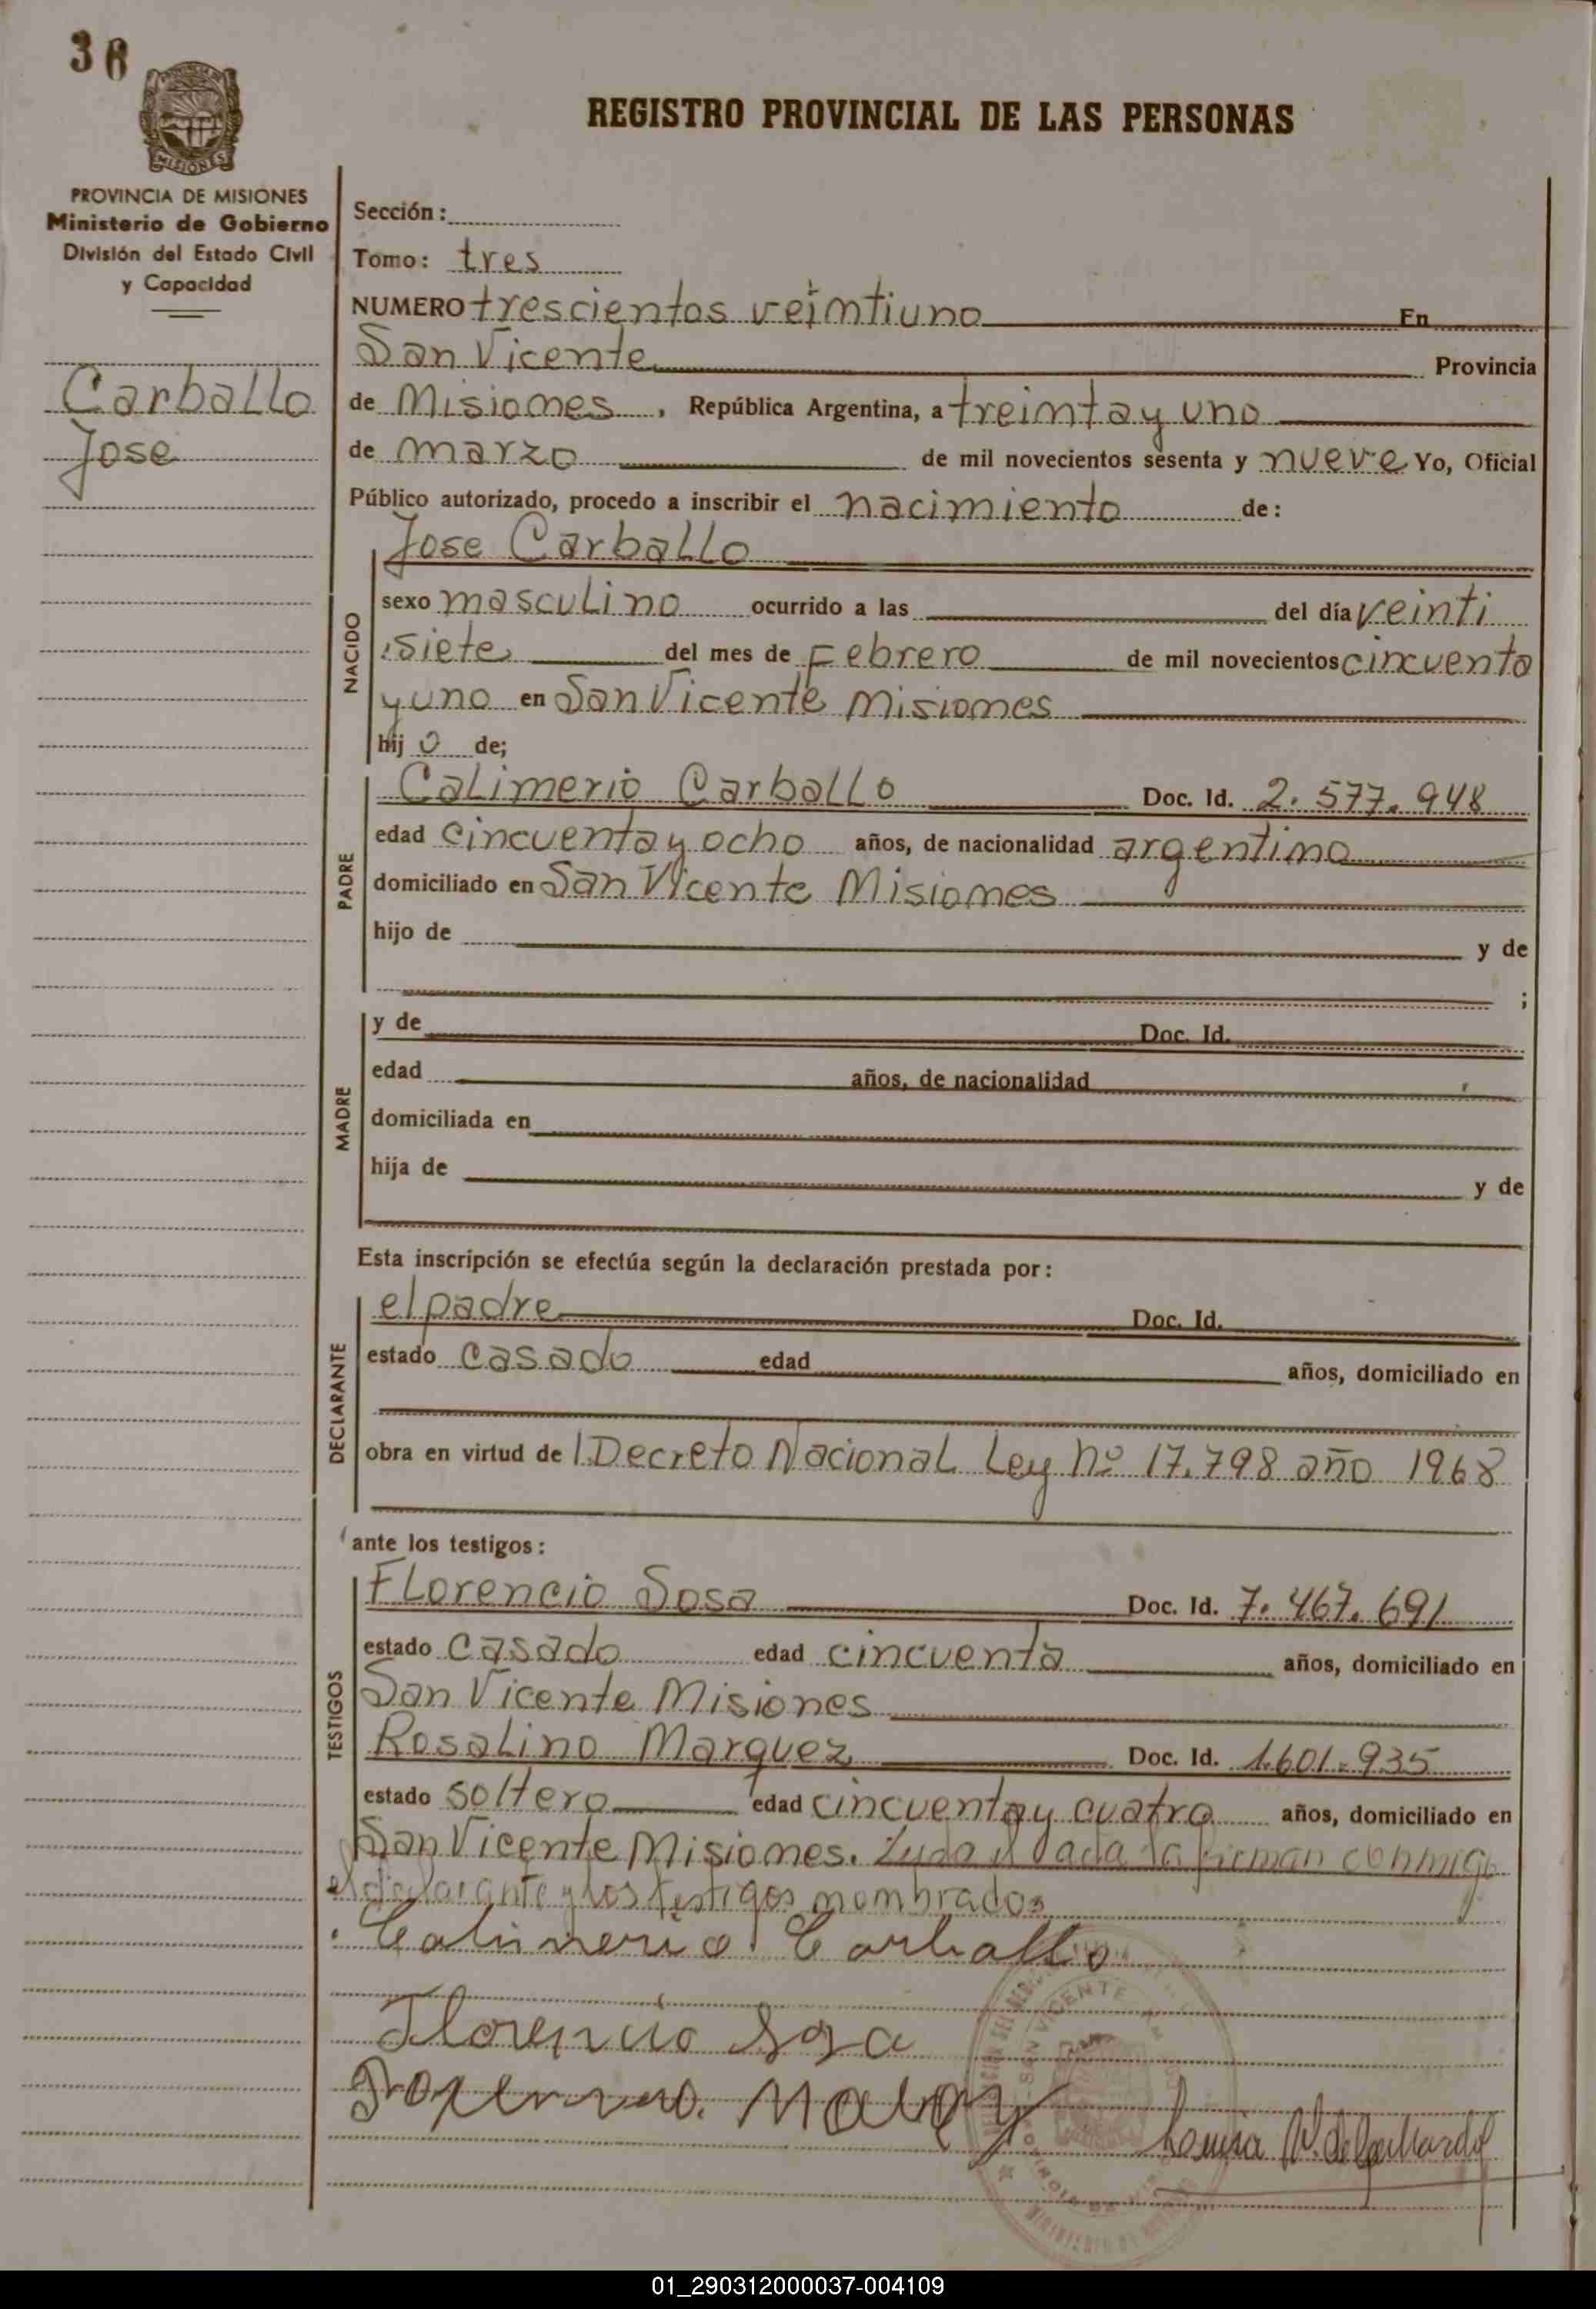 36
MISIONES
PROVINCIA DE MISIONES
Ministerio de Gobierno
División del Estado Civil
y Capacidad
Carballo
Jose
REGISTRO PROVINCIAL DE LAS PERSONAS
Sección:
Tomo: tres
NUMERO trescientos veintiuno En
San Vicente Provincia
de Misiones, República Argentina, a treinta y uno
de marzo de mil novecientos sesenta y nueve Yo, Oficial
Público autorizado, procedo a inscribir el nacimiento de:
NACIDO
Jose Carballo
sexo masculino ocurrido a las del día veinti
siete del mes de Febrero de mil novecientos cincuenta
y uno en San Vicente Misiones
hijo de;
PADRE
Calimerio Carballo Doc. Id. 2.577.948
edad cincuenta y ocho años, de nacionalidad argentina
domiciliado en San Vicente Misiones
hijo de y de
;
MADRE
y de Doc. Id.
edad años, de nacionalidad
domiciliada en
hija de y de
Esta inscripción se efectúa según la declaración prestada por:
DECLARANTE
el padre Doc. Id.
estado casado edad años, domiciliado en
obra en virtud de l Decreto Nacional Ley nº 17.798 año 1968
ante los testigos:
TESTIGOS
Florencio Sosa Doc. Id. 7.467.691
estado casado edad cincuenta años, domiciliado en
San Vicente Misiones
Rosalino Marquez Doc. Id. 1.601.935
estado soltero edad cincuenta y cuatro años, domiciliado en
San Vicente Misiones. Leida el acta la firman conmigo
el declarante y los testigos nombrados
Calimerio Carballo
Florencio Sosa
SAN VICENTE
01_290312000037-004109